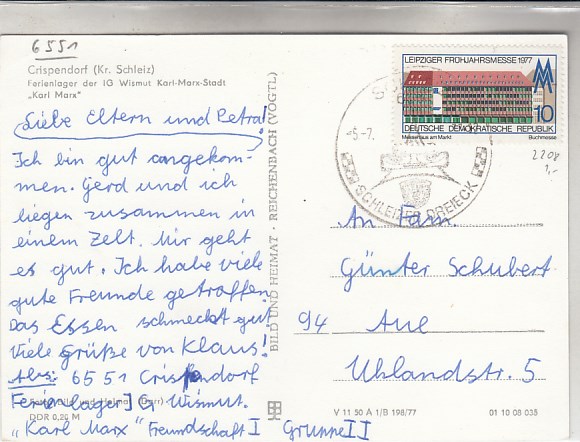 6551
Crispendorf (Kr. Schleiz)
Ferienlager der IG Wismut Karl-Marx-Stadt
„Karl Marx"
Liebe Eltern und Petra!
Ich bin gut angekom-
men. Gerd und ich
liegen zusammen in
einem Zelt. Mir geht
es gut. Ich habe viele
gute Freunde getroffen.
Das Essen schmeckt gut
Viele grüße von Klaus!
Abs: 6551 Crispendorf
Ferienlager IG Wismut.
"Karl Marx" Freundschaft I Gruppe II
DDR 0,20 M
BILD UND HEIMAT · REICHENBACH (VOGTL)
LEIPZIGER FRÜHJAHRSMESSE 1977
10
DEUTSCHE DEMOKRATISCHE REPUBLIK
Messehaus am Markt Buchmesse
-5.-7.
SCHLEIZER DREIECK
2208
1,-
An Fam.
Günter Schubert
94 Aue
Uhlandstr. 5
V 11 50 A 1/B 198/77
01 10 08 035